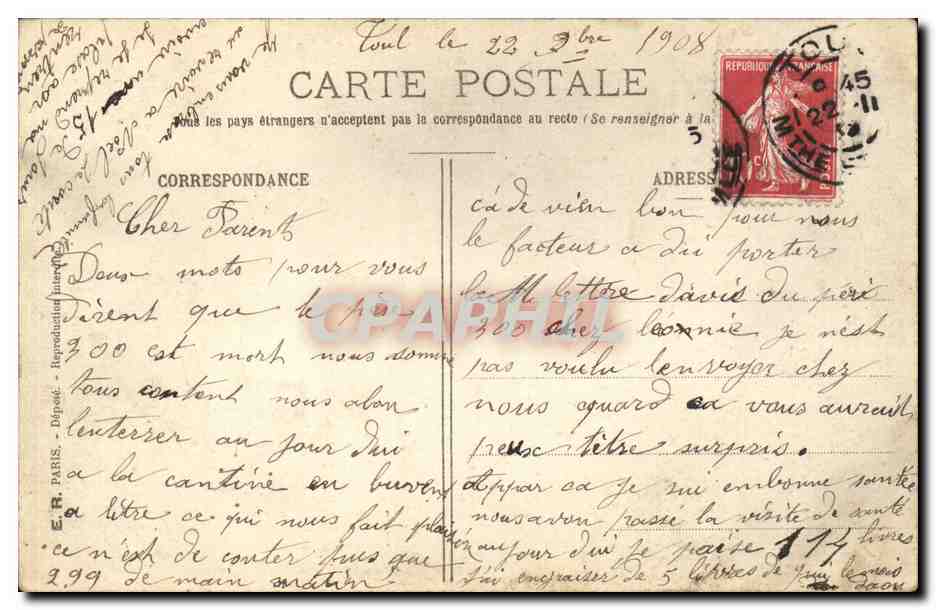 Toul le 22 9bre 1908
CARTE POSTALE
Tous les pays étrangers n'acceptent pas la correspondance au recto (Se renseigner à la
RÉPUBLIQUE FRANÇAISE
POSTES
TOUL
45
22 -11
CORRESPONDANCE
ADRESS
Cher Parents
Deux mots pour vous
dirent que le père
300 est mort nous somme
tous content nous alon
lenterrer au jour dui
a la cantine en buvent
a litre ce qui nous fait plaisir
ce n'est de conter puis que
299 de main matin
çà de vien bon pour nous
le facteur a du porter
la M lettre davis du père
300 chez léonnie je n'est
pas voulu lenvoyer chez
nous quard ca vous aureait
peux têtre surpris.
appar ca je sui enbonne santée
nous avon passé la visite de santé
aujour dui je paise 117 livres
j'ai engraiser de 5 livres de le mois
je vous enbra
tous
au revoire a Noël
E. R. PARIS. - Déposé. - Reproduction interdite.
CPAPHIL